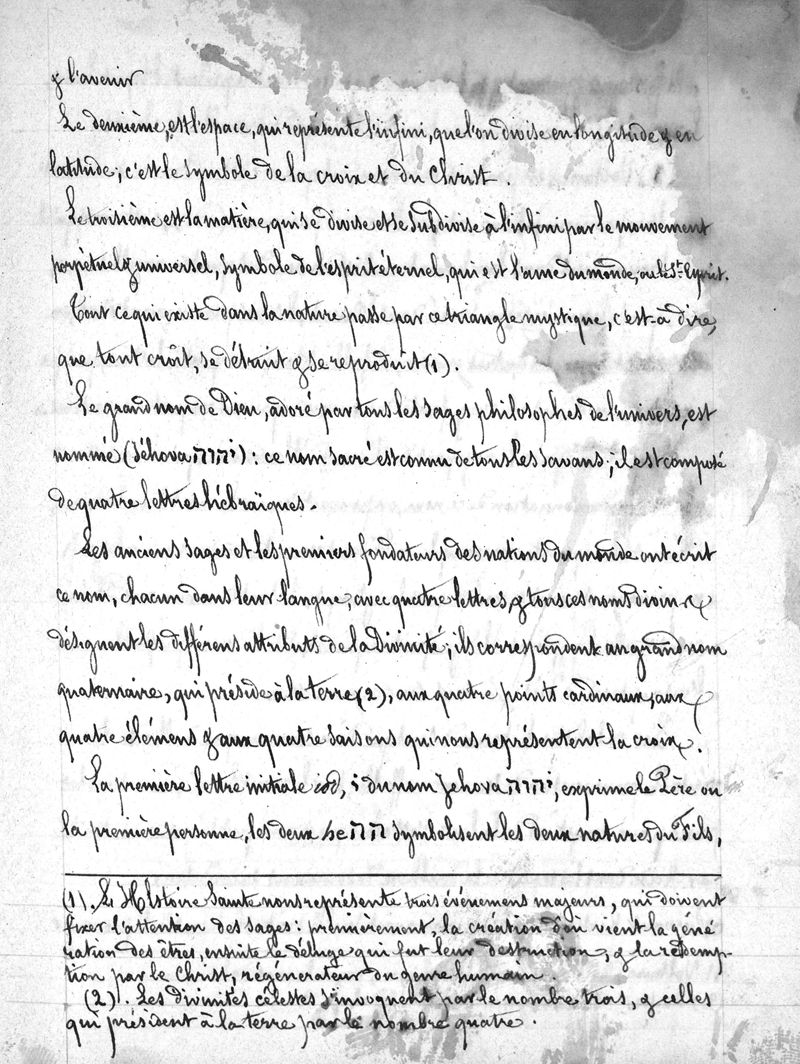 & l'avenir
Le deuxième, est l'espace, qui représente l'infini, que l'on divise en longitude & en
latitude; c'est le symbole de la croix et du Christ.
Le troisième est la matière, qui se divise et se subdivise à l'infini par le mouvement
perpétuel & universel, symbole de l'esprit éternel, qui est l'ame du monde, ou le St. Esprit.
Tout ce qui existe dans la nature passe par ce triangle mystique, c'est-à dire,
que tout croît, se détruit & se reproduit (1).
Le grand nom de Dieu, adoré par tous les sages philosophes de l'univers, est
nommé (Jéhova יהוה): ce nom sacré est connu de tous les savans; il est composé
de quatre lettres hébraïques.
Les anciens sages et les premiers fondateurs des nations du monde ont écrit
ce nom, chacun dans leur langue, avec quatre lettres, & tous ces noms divins
désignent les différens attributs de la Divinité; ils correspondent au grand nom
quaternaire, qui préside à la terre (2), aux quatre points cardinaux, aux
quatre élémens & aux quatre saisons qui nous représentent la croix.
La première lettre initiale iod, י du nom Jehova יהוה, exprime le Père ou
la première personne, les deux he הה symbolisent les deux natures du Fils,
(1). L'Histoire Sainte nous représente trois événemens majeurs, qui doivent
fixer l'attention des sages: premièrement, la création d'où vient la géné
ration des êtres, ensuite le déluge qui fut leur destruction, & la rédemp-
tion par le Christ, régénérateur du genre humain.
(2). Les divinités célestes s'invoquent par le nombre trois, & celles
qui président à la terre par le nombre quatre.